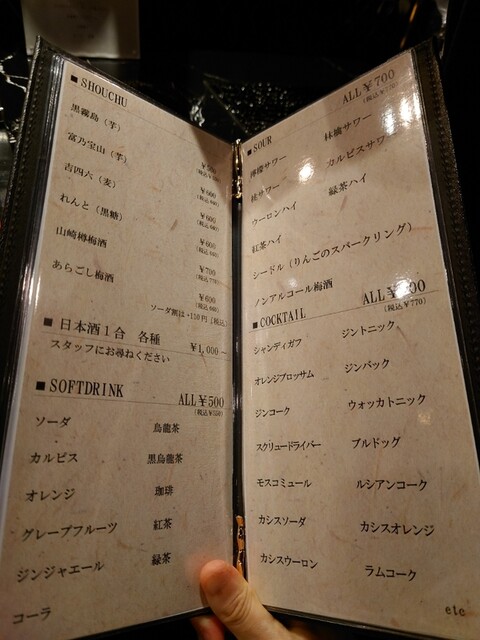 ■ SHOUCHU
黒霧島（芋）
富乃宝山（芋） ¥600
吉四六（麦） ¥600
れんと（黒糖） ¥600
山崎樽梅酒 ¥700
あらごし梅酒 ¥600
ソーダ割は+110円（税込）
■ 日本酒1合 各種 ¥1,000～
スタッフにお尋ねください
■ SOFTDRINK ALL ¥500
(税込¥550)
ソーダ 烏龍茶
カルピス 黒烏龍茶
オレンジ 珈琲
グレープフルーツ 紅茶
ジンジャエール 緑茶
コーラ
■ SOUR ALL ¥700
(税込¥770)
檸檬サワー 林檎サワー
桃サワー カルピスサワー
ウーロンハイ 緑茶ハイ
紅茶ハイ
シードル（りんごのスパークリング）
ノンアルコール梅酒
■ COCKTAIL ALL
(税込¥770)
シャンディガフ ジントニック
オレンジブロッサム ジンバック
ジンコーク ウォッカトニック
スクリュードライバー ブルドッグ
モスコミュール ルシアンコーク
カシスソーダ カシスオレンジ
カシスウーロン ラムコーク
etc